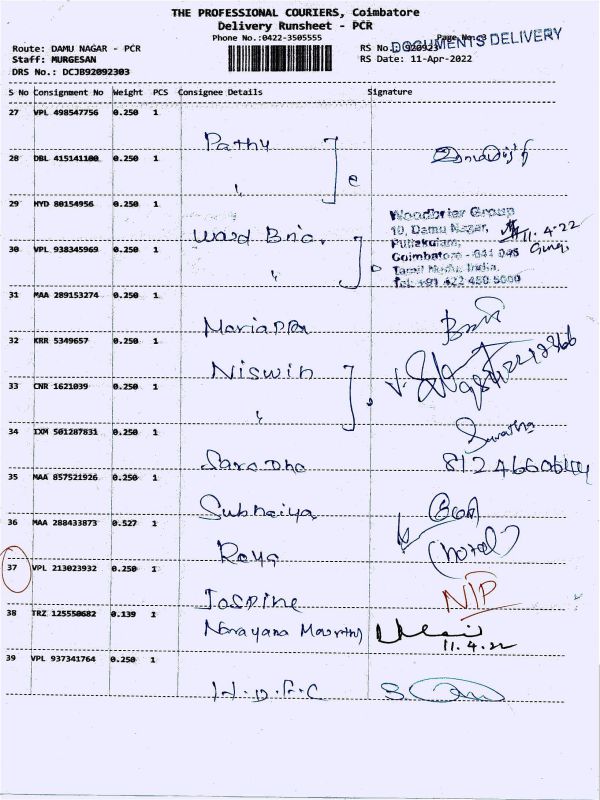 THE PROFESSIONAL COURIERS, Coimbatore
Delivery Runsheet - PCR
Phone No.:0422-3505555
Page No. 3
DOCUMENTS DELIVERY
Route: DAMU NAGAR - PCR
RS No.: 920923
Staff: MURGESAN
RS Date: 11-Apr-2022
DRS No.: DCJB92092303
S No Consignment No Weight PCS Consignee Details Signature
27 VPL 498547756 0.250 1
Pathy
28 DBL 415141100 0.250 1
"
29 HYD 80154956 0.250 1
Woodbriar Group
Ward Bria.
10, Damu Nagar, 11.4.22
Puliakulam,
30 VPL 938345969 0.250 1
Coimbatore - 641 045
"
Tamil Nadu, India.
Tel: +91 422 450 5000
31 MAA 289153274 0.250 1
Mariappa
32 KRR 5349657 0.250 1
Niswin
33 CNR 1621039 0.250 1
"
34 IXM 501287831 0.250 1
Swatha
Saradha
35 MAA 857521926 0.250 1
Subhaiya
36 MAA 288433873 0.527 1
Roya
(hotel)
37 VPL 213023932 0.250 1
Jospine NIP
38 TRZ 125550682 0.139 1
Narayana Moorthy
11.4.22
39 VPL 937341764 0.250 1
H.D.F.C